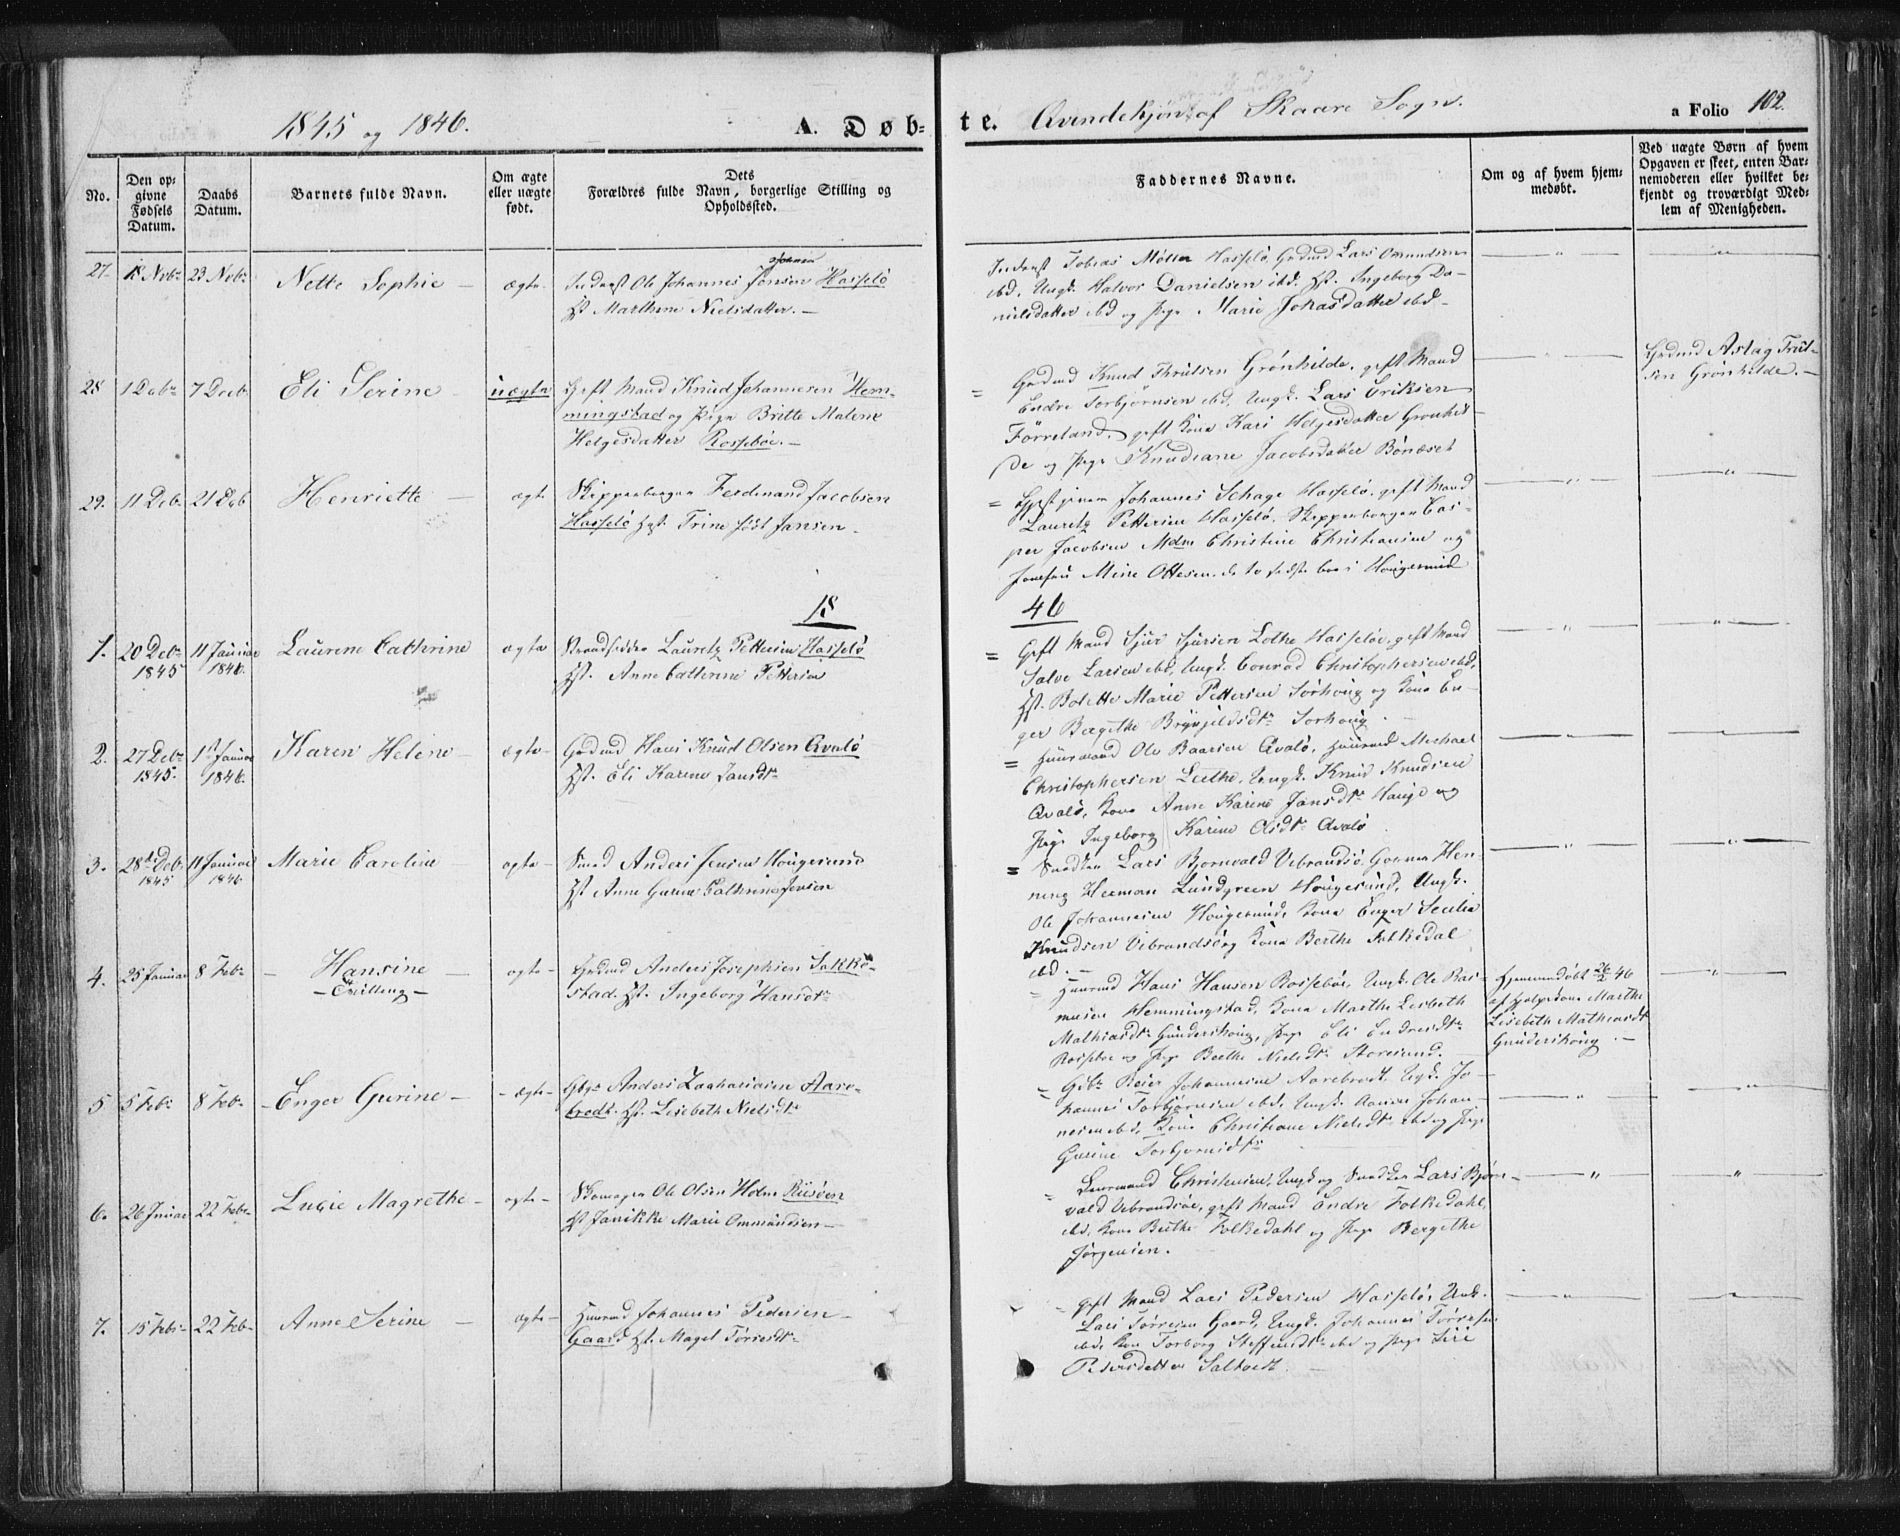 1845 og 1846.
A. Døb-
te. Qvindekjøn af Skaare Sogn.
a Folio 102.
No.
Den op-
givne
Fødsels
Datum.
Daabs
Datum.
Barnets fulde Navn.
Om ægte
eller uægte
født.
Dets
Forældres fulde Navn, borgerlige Stilling og
Opholdssted.
Faddernes Navne.
Om og af hvem hjem-
medøbt.
Ved uægte Børn af hvem
Opgaven er skeet, enten Bar-
nemoderen eller hvilket be-
kjendt og troværdigt Med-
lem af Menigheden.
27. 18 Nobr 23 Nobr Nette Sophie — ægte
Ole Johannes Jonsen Hasselø
Hst. Marthene Nielsdatter. —
Tobias Møller Hasselø, Grdmd Lars Omundsen
ibd, Ungk. Halvor Danielsen ibd. Hst. Ingeborg Da-
nielsdatter ibd og Pige Marie Johasdatter ibd —
28 1 Debr 7 Decb Eli Serine uægte
Gift Mand Knud Johannesen Hem-
mingstad og Pige Britte Malene
Helgesdatter Rossebøe. —
= Grdmd Knud Thrulsen Grønhilde, gift Mand
Endre Torbjørnsen ibd, Ungk. Lars Eriksen
Førreland, gift Kone Kari Helgesdatter Grønhil-
de og Pige Knudsane Jacobsdatter Bønæset
Grdmd Aslag Trul-
sen Grønhilde. —
29. 11 Deb. 21 Deb Henriette — ægte
Skipperborger Ferdinand Jacobsen
Hasselø Hst. Trine født Jansen.
= Gjestgiver Johannes Schage Hasselø, gift Mand
Lauretz Pettersen Hasselø, Skipperborger Cas-
per Jacobsen Mdm Christine Christiansen og
Jomfru Mine Ottesen. de to sidste boe i Hougesund
18
46
1. 20 Debr 1845 11 Januar 1846. Laurene Cathrine ægte
Strandsidder Lauretz Pettersen Hasselø
Hst. Anne Catherine Pettersen
= Gift Mand Sjur Sjursen Lothe Hasseløe, gift Mand
Salve Larsen ibd, Ungk. Conrad Christophersen ibd,
Hst. Bolette Marie Pettersen Sørhoug og Kone En-
ger Bergithe Brynjeldsdtr Sørhoug.
2. 27 Debr 1845. 1st Januar 1846. Karen Helene — ægte —
Grdmd Hans Knud Olsen Qvalø
Hst. Eli Karine Jansdtr
= Huusmand Ole Baarsen Qvalø, Huusmd Michael
Christophersen Lothe, Ungk. Knud Knudsen
Qvalø, Kone Anne Karine Jansdtr Hauge og
Pige Ingeborg Karine Olsdtr Qvalø
3. 28de Deb. 1845 11 Januar 1846 Marie Caroline ægte —
Smed Anders Jensen Hougesund
Hst Anne Gurine Cathrine Jensen
= Snedker Lars Bjørnvald Vibrandsø, Hen-
ning Herman Lundgreen Hougesund, Ungk.
Ole Johannesen Hougesund, Kone Enger Secilia
Knudsen Vibrandsø og Kone Berthe Folkedal
ibd. —
4. 25 Januar 8 Febr — Hansine —
— Tvilling —
ægte —
Grdmd Anders Josephsen Sakke-
stad. Hst. Ingeborg Hansdtr
= Huusmd Hans Hansen Rossebøe, Ungk. Ole Ras-
musen Hemmingstad, Kone Marthe Lisbeth
Mathiasdtr Gundershoug, Pige Eli Endresdtr
Rossebø og Pige Berthe Nielsdtr Storesund.
Hjemmedøbt 26/2 46
af Hjelpekone Marthe
Lisebeth Mathiasdt
Gundershoug. —
5 5 Febr 8 Febr — Enger Gurine — — ægte —
Gbgr Anders Zachariasen Aare-
brodt. Hst. Lisebeth Nielsdtr
= Gbr Reier Johannesen Aarebrodt, Ungk. Jo-
hannes Torbjørnsen ibd, Ungk. Johan-
nesen ibd, Kone Christiane Nielsdtr ibd og Pige
Gurine Torbjørnsdtr
6. 26 Januar 22 Febr Lucie Magrethe — ægte —
Skomager Ole Olsen Holm Riisøen
Hst Janikke Marie Ommundsen —
= Christensen, Ungk og Snedker Lars Bjørn-
vald Vibrandsøe, gift Mand Endre Folkedahl,
ibd, Kone Berthe Folkedahl og Pige Bergithe
Jørgensen.
7. 15 Febr 22 Feb Anne Serine — ægte —
Huusmd Johannes Pedersen
Gaard Hst. Magel Tørresdtr
= gift Mand Lars Pedersen Hasselø, Ungk.
Lars Tørresen Gaard, Ungk. Johannes Tørresen
ibd, Kone Torborg Steffensdtr ibd og Pige Siri
Pedersdatter Saltvedt.